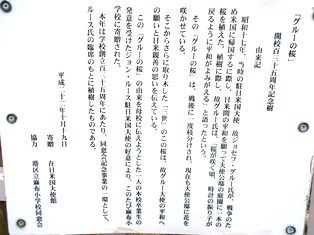 「グルーの桜」
開校百三十五周年記念樹
由来記
昭和十七年、当時の駐日米国大使 故ジョセフ・グルー氏が、戦争のた
め米国に帰国するに際し、日米間の平和を願って大使公邸の庭園に一本の
桜を植えた。植樹に際し、故グルー氏は「桜が咲く頃、時計の振り子が
戻るように平和がよみがえる」と語ったという。
その「グルーの桜」は、戦後に二度枝分けされ、現在も大使公邸に花を
咲かせている。
そこから穂木を取り木した「三世」のこの桜は、故グルー大使の平和へ
の願いと日米親善の思いを伝えている。
この「グルーの桜」の由来を母校に伝えようとした一人の本校卒業生の
発意を受けたジョン・ルース駐日米国大使の好意により、このたび麻布小
学校に寄贈された。
本年は学校創立百三十五周年にあたり、同窓会記念事業の一環として、
ルース氏の臨席のもとに植樹したものである。
平成二十二年十月十九日
寄贈 在日米国大使館
協力 港区立麻布小学校同窓会